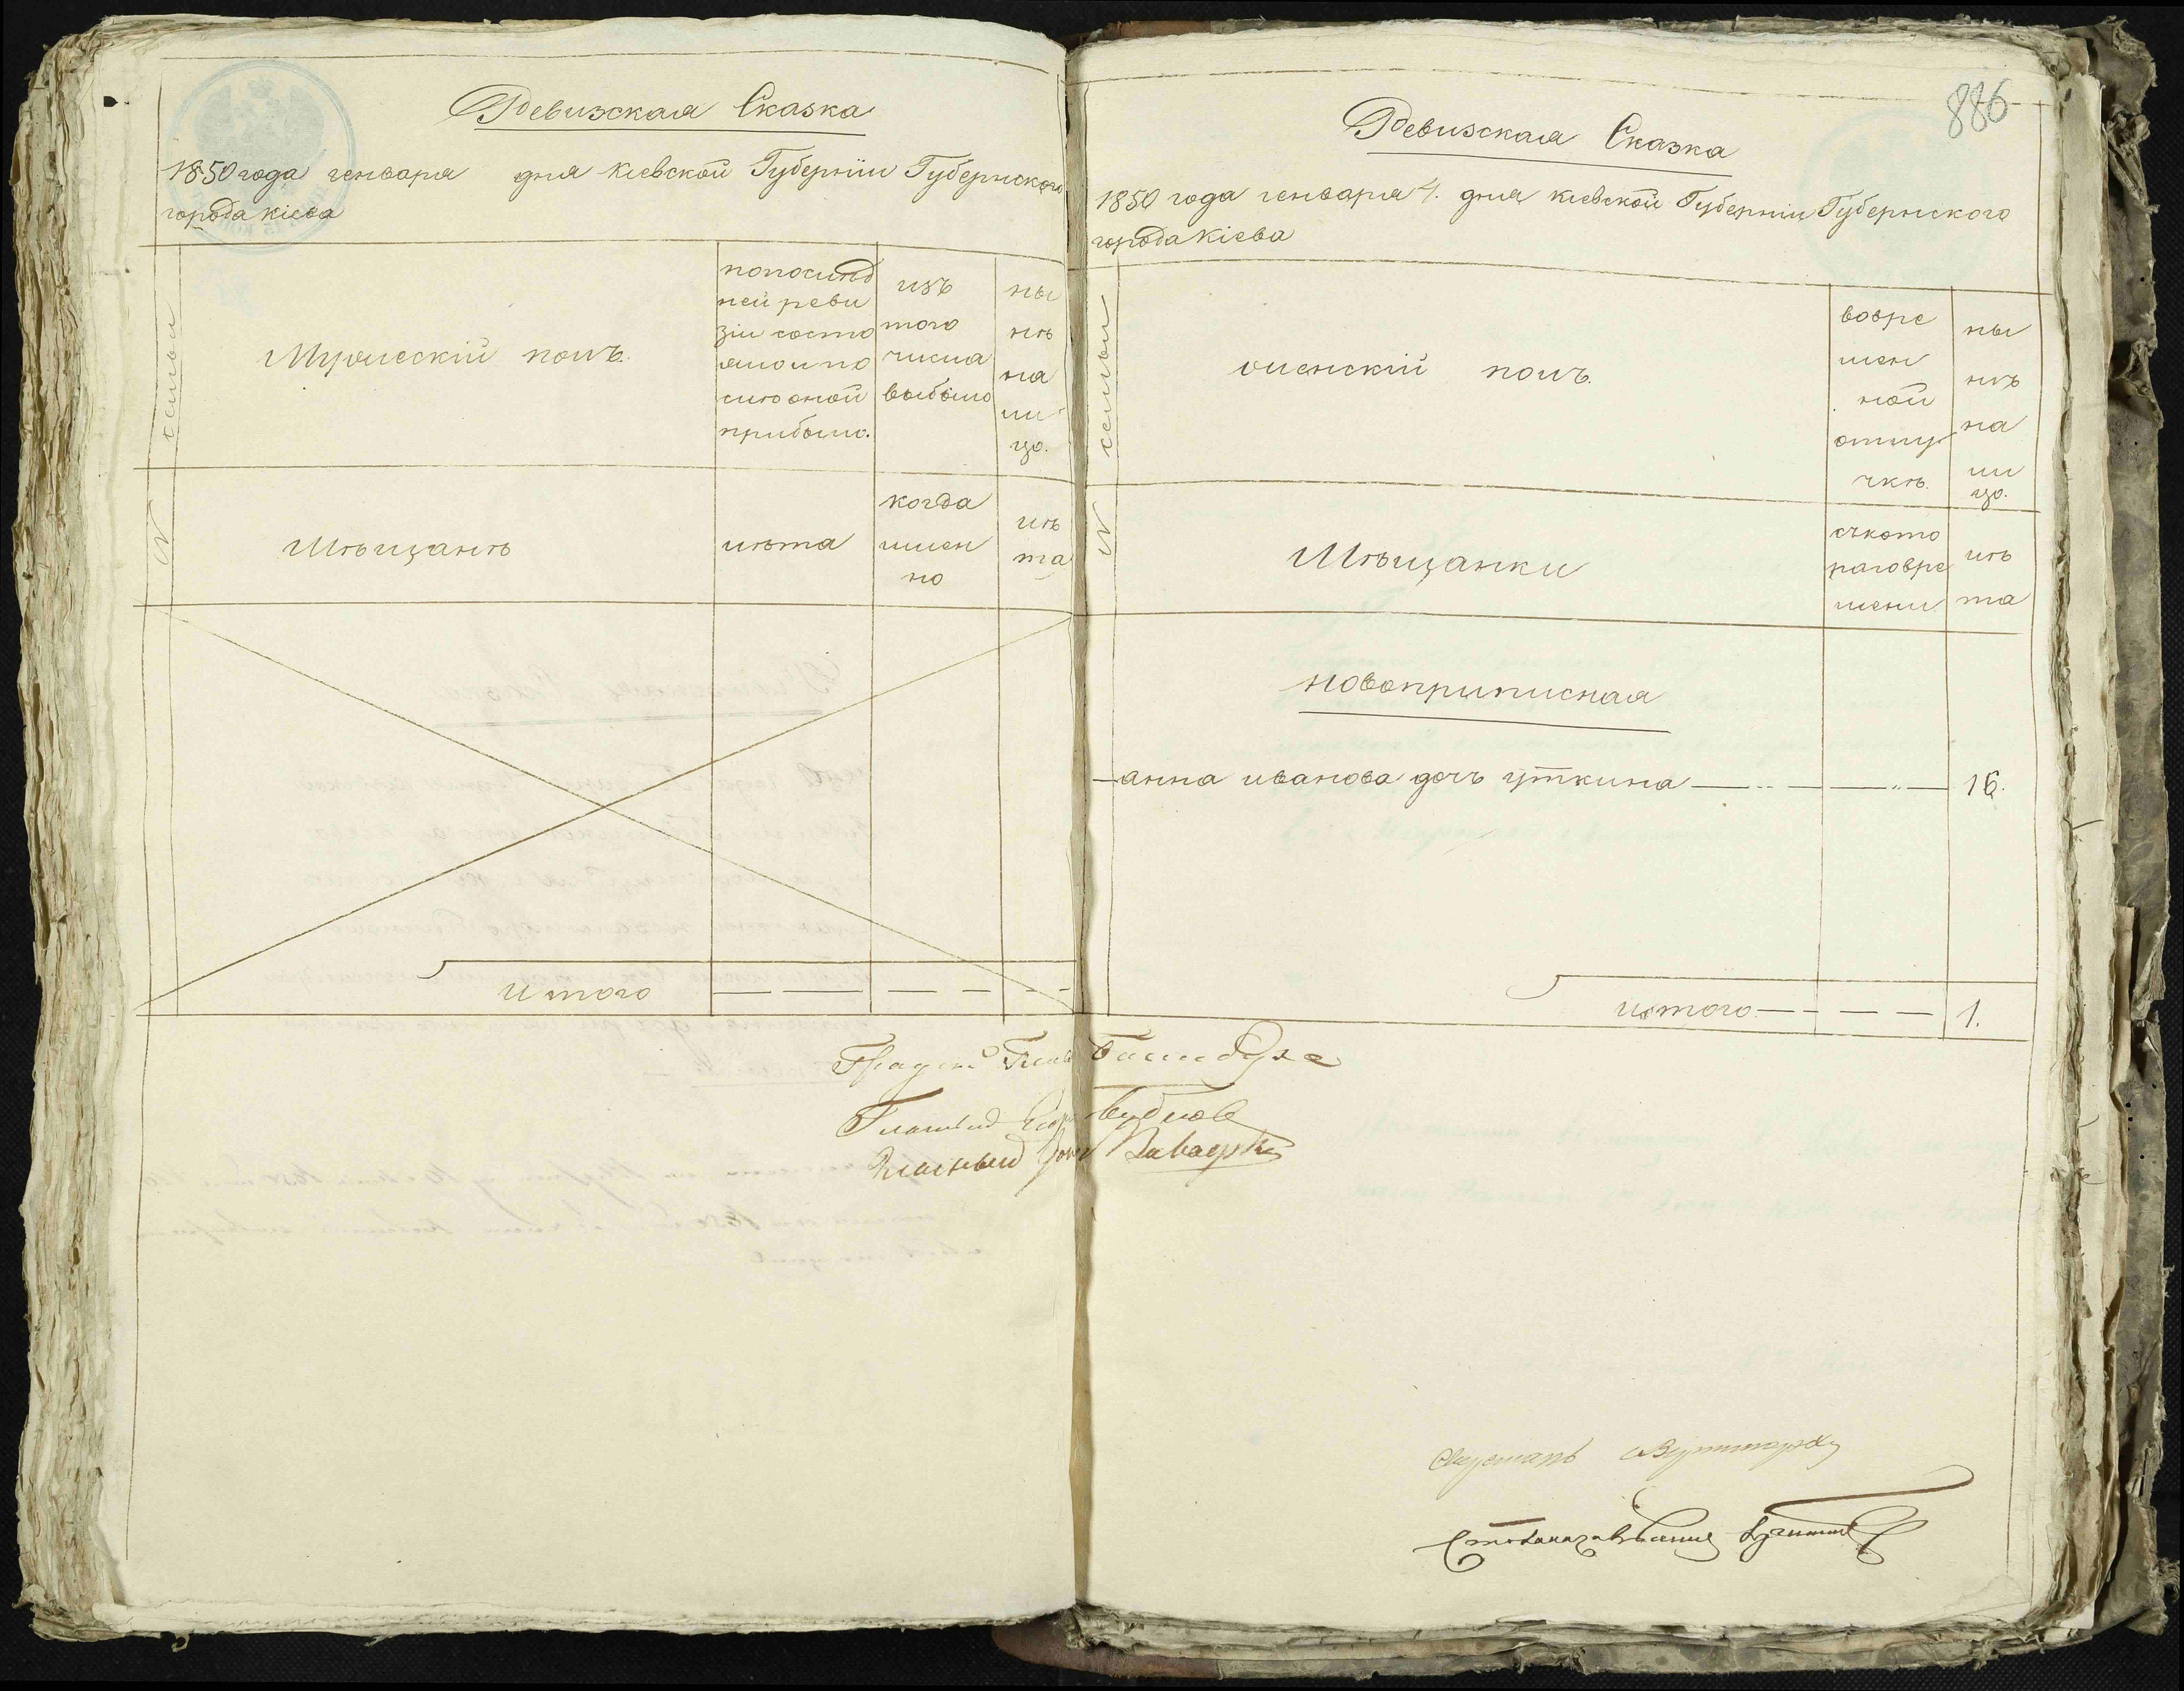 Ревизская Сказка
1850 года генваря дня киевской Губернiи Губернского
города Кiева
№ семьи
Мужескiй полъ.
по послѣд
ней реви
зiи состо
яло и по
слѣ оной
прибыло.
изъ
того
числа
выбыло
ны
нѣ
на
ли
цо.
Мѣщанѣ
лѣта
когда
имен
но
лѣ
та
итого
886
Ревизская Сказка
1850 года генваря 4. дня киевской Губернiи Губернского
города Кiева
№ семьи
женскiй полъ.
во вре
мен
ной
отлу
чкѣ.
ны
нѣ
на
ли
цо.
Мѣщанки
съ кото
раго вре
мени
лѣ
та
новоприписная
анна иванова дочь уткина 16.
итого 1.
Градск
Гласный Бубнов
Гласный